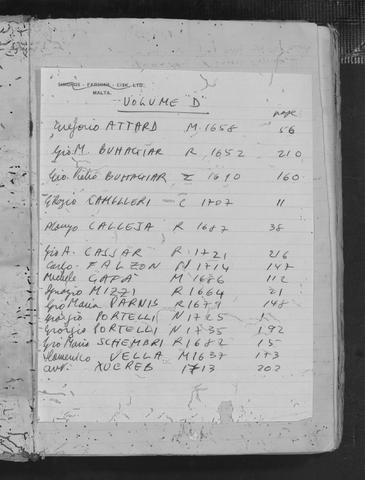 SIMONDS - FARSONS - CISK, LTD.
MALTA.
VOLUME D
page
Gregorio ATTARD M 1658 56
Gio M. BUHAGIAR R 1652 210
Gio. Pietro BUHAGIAR Z 1690 160
CAMILLERI C 1707 11
Alonzo CALLEJA R 1687 38
Gio A. CASSAR R 1721 216
Carlo FALZON N 1714 147
Michele GAFA M 1686 112
Grazio MIZZI R 1664 21
Gio Maria PARNIS R 1679 148
Giorgio PORTELLI N 1725 1
Giorgio PORTELLI N 1735 192
Gio Maria SCHEMBRI R 1682 15
Domenico VELLA M 1637 173
Ant. XUEREB 1713 202